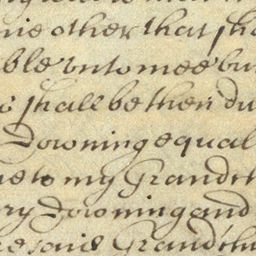 nie other that sha
ble unto mee bu
shall be then du
Downing equal
e to my Grandch
ry Downing and
said Grandch